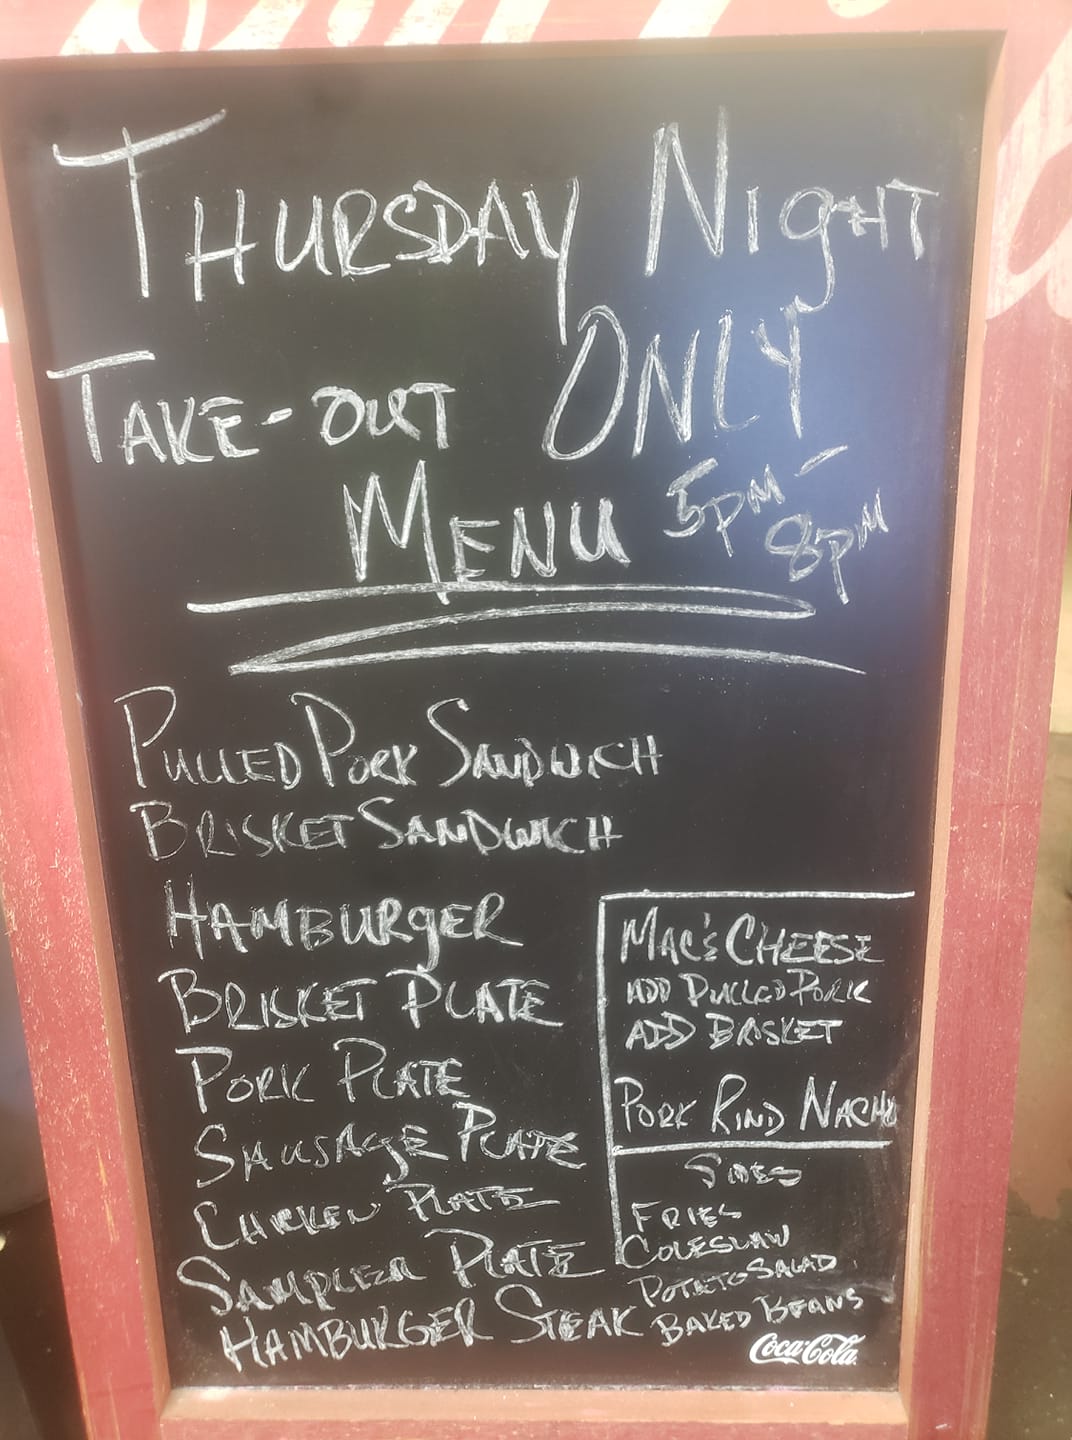 THURSDAY NIGHT
TAKE-OUT ONLY
MENU 5PM-
8PM
PULLED PORK SANDWICH
BRISKET SANDWICH
HAMBURGER
BRISKET PLATE
PORK PLATE
SAUSAGE PLATE
CHICKEN PLATE
SAMPLER PLATE
HAMBURGER STEAK
MAC & CHEESE
ADD PULLED PORK
ADD BRISKET
PORK RIND NACHO
SIDES
FRIES
COLESLAW
POTATO SALAD
BAKED BEANS
Coca-Cola